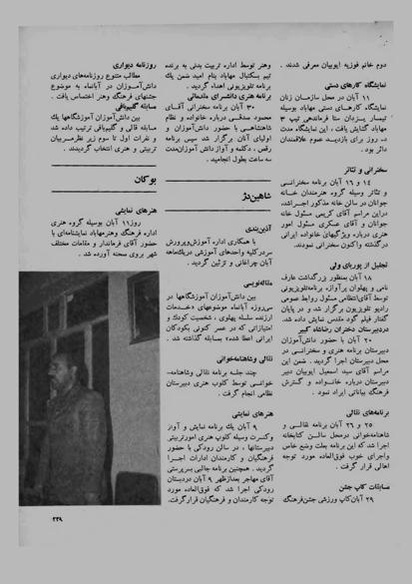 دوم خانم فوزیه ایوبیان معرفی شدند .
نمایشگاه کارهای دستی
۱۱ آبان در محل سازمان زنان
نمایشگاه کارهای دستی مهاباد بوسیله
تیمسار یزدان ستا فرماندهی تیپ ۳
مهاباد گشایش یافت ، این نمایشگاه مدت
ده روز برای بازدید عموم علاقمندان
دائر بود .
سخنرانی و تئاتر
۱۴ و ۱۶ آبان برنامه سخنرانی
و تئاتر وسیله گروه هنرمندان خانه
جوانان در سالن خانه مذکور اجراشد.
دراین مراسم آقای کریمی مسئول خانه
جوانان و آقای عسکری مسئول امور
هنری درباره ویژگیهای خانواده ایرانی
درگذشته واکنون سخنرانی نمودند.
تجلیل از پوریای ولی
۱۸ آبان بمنظور بزرگداشت عارف
نامی و پهلوان پرآوازه برنامه‌تلویزیونی
توسط آقای‌انتظامی مسئول روابط عمومی
رادیو تلویزیون برگزار شد و در پایان
گفتار فیلم گود مقدس نمایش داده شد.
دردبیرستان دختران رضاشاه کبیر
۲۰ آبان با حضور دانش‌آموزان
دبیرستان برنامه هنری و سخنرانی در
محل دبیرستان اجرا گردید . در این
مراسم آقای سید اسمعیل ایوبیان دبیر
دبیرستان درباره خانواده و گسترش
فرهنگ بیاناتی ایراد نمود .
برنامه‌های نقالی
۲۵ و ۲۶ آبان برنامه نقالی و
شاهنامه‌خوانی درمحل سالن کتابخانه
اجرا شد که این برنامه بعلت وضع خاص
واجرای خوب فوق‌العاده مورد توجه
اهالی قرار گرفت .
مسابقات کاپ جشن
۲۹ آبان‌کاپ ورزشی جشن‌فرهنگ
وهنر توسط اداره تربیت بدنی به برنده
تیم بسکتبال مهاباد بنام امید ضمن یک
برنامه تلویزیونی اهداء گردید .
برنامه هنری دانشسرای مقدماتی
۳۰ آبان برنامه سخنرانی آقای
محمود صدقی درباره خانواده و نظام
شاهنشاهی با حضور دانش‌آموزان و
اولیای آنان برگزار شد سپس برنامه
رقص ، دکلمه و آواز دانش‌آموزان‌مدت
سه ساعت بطول انجامید .
شاهین‌دژ
آذین‌بندی
با همکاری اداره آموزش‌وپرورش
سردرکلیه واحدهای آموزشی دریک‌ماهه
آبان چراغانی و تزئین گردید .
مقاله‌نویسی
بین دانش‌آموزان آموزشگاهها در
سی‌روزه آبانماه موضوعهای «خدمات
ارزنده سلسله پهلوی ، شخصیت کودک و
امتیازاتی که در عصر کنونی بکودکان
ایرانی اعطا شده» بمسابقه گذاشته شد .
نقالی وشاهنامه‌خوانی
چند جلسه برنامه نقالی وشاهنامه-
خوانی توسط کلوب هنری دبیرستان
نظامی انجام گرفت .
هنرهای نمایشی
۹ آبان یك برنامه نمایش و آواز
وکنسرت وسیله کلوپ هنری امورتربیتی
دبیرستانها ، در سالن رودکی با حضور
فرهنگیان و کارمندان ادارات اجرا
گردید . همچنین برنامه جالبی بسرپرستی
آقای مهاجر بعدازظهر ۹ آبان دردبستان
رودکی اجرا شد که فوق‌العاده مورد
توجه کارمندان و فرهنگیان قرارگرفت.
روزنامه دیواری
مطالب متنوع روزنامه‌های دیواری
دانش‌آموزان در آبانماه به موضوع
جشنهای فرهنگ وهنر اختصاص یافت .
مسابقه گلیم‌بافی
بین دانش‌آموزان آموزشگاهها یك
مسابقه قالی و گلیم‌بافی ترتیب داده شد
و نفرات اول تا سوم زیر نظرمربیان
تربیتی و هنری انتخاب گردیدند .
بوکان
هنرهای نمایشی
روز۱۱ آبان بوسیله گروه هنری
اداره فرهنگ وهنرمهاباد نمایشنامه‌ای با
حضور آقای فرماندار و مقامات مختلف
شهر بروی صحنه آورده شد .
۲۳۹